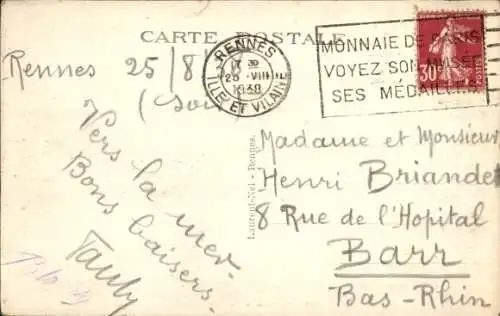 CARTE POSTALE
RENNES
25 VIII
1938
ILLE ET VILAINE
MONNAIE DE PARIS
VOYEZ SON MUSÉE
SES MÉDAILLES
30
POSTES
Rennes 25/8/
(soir
Vers la mer
Bons baisers.
Laurent-Nel - Rennes.
Madame et Monsieur
Henri Briandet
8 Rue de l'Hopital
Barr
Bas-Rhin